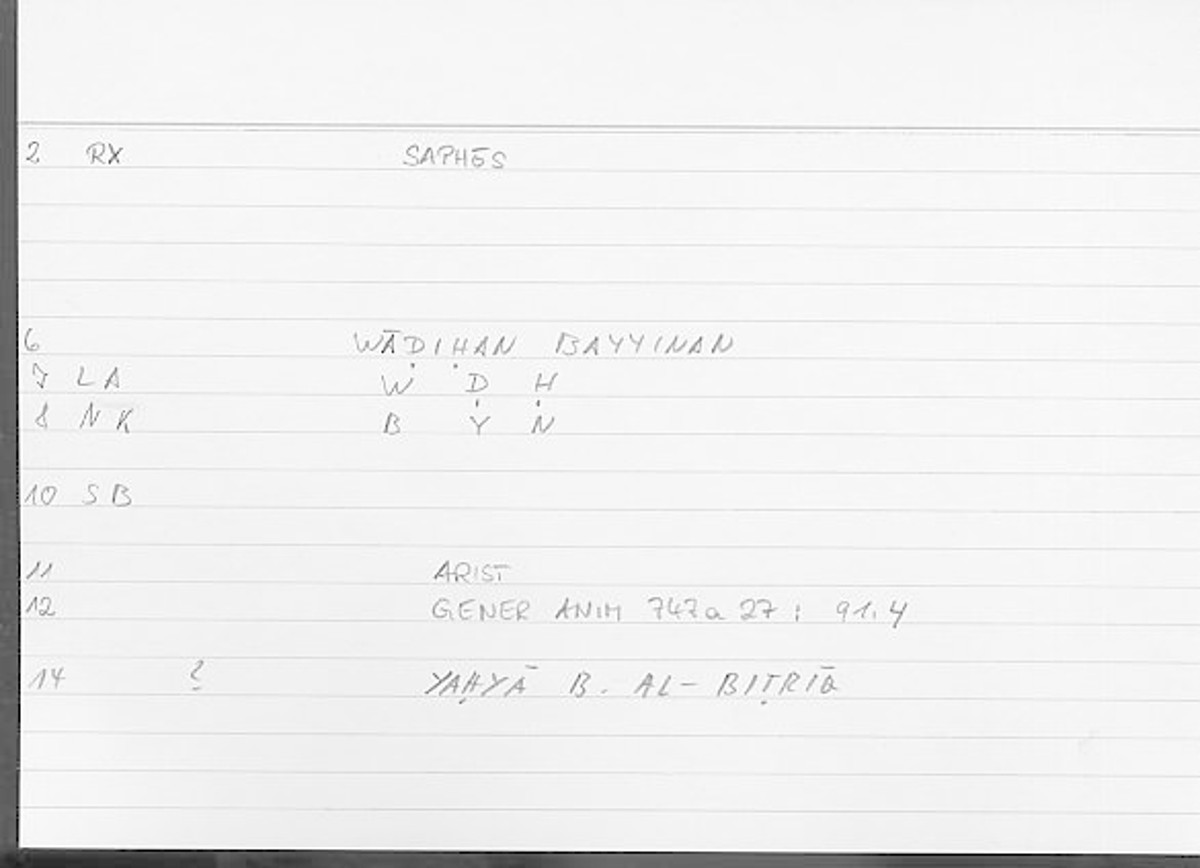 2 RX SAPHĒS
6 WĀḌIḤAN BAYYINAN
7 LA W Ḍ Ḥ
8 NK B Y N
10 SB
11 ARIST
12 GENER ANIM 747a 27 ; 91.4
14 ? YAḤYĀ B. AL-BIṬRĪQ